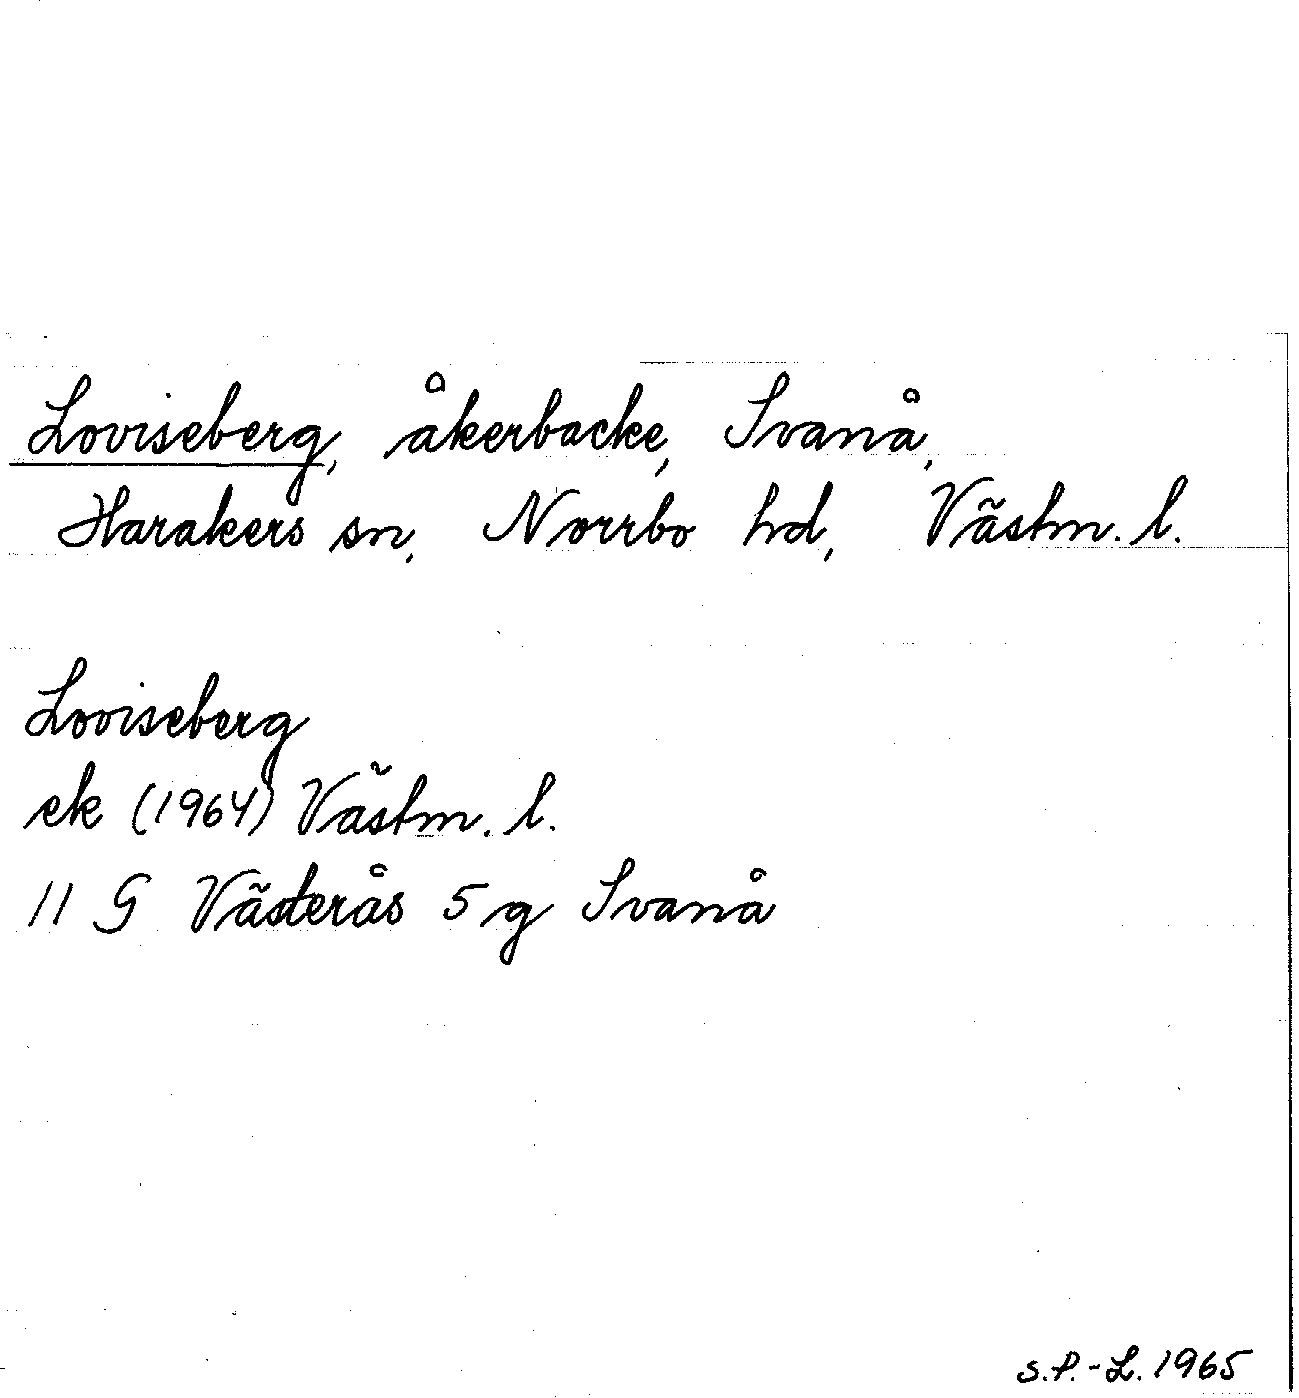 Loviseberg, åkerbacke, Svanå,
Harakers sn, Norrbo hd, Västm. l.
Loviseberg
ek (1964) Västm. l.
11 G Västerås 5 g Svanå
S.P.-L. 1965